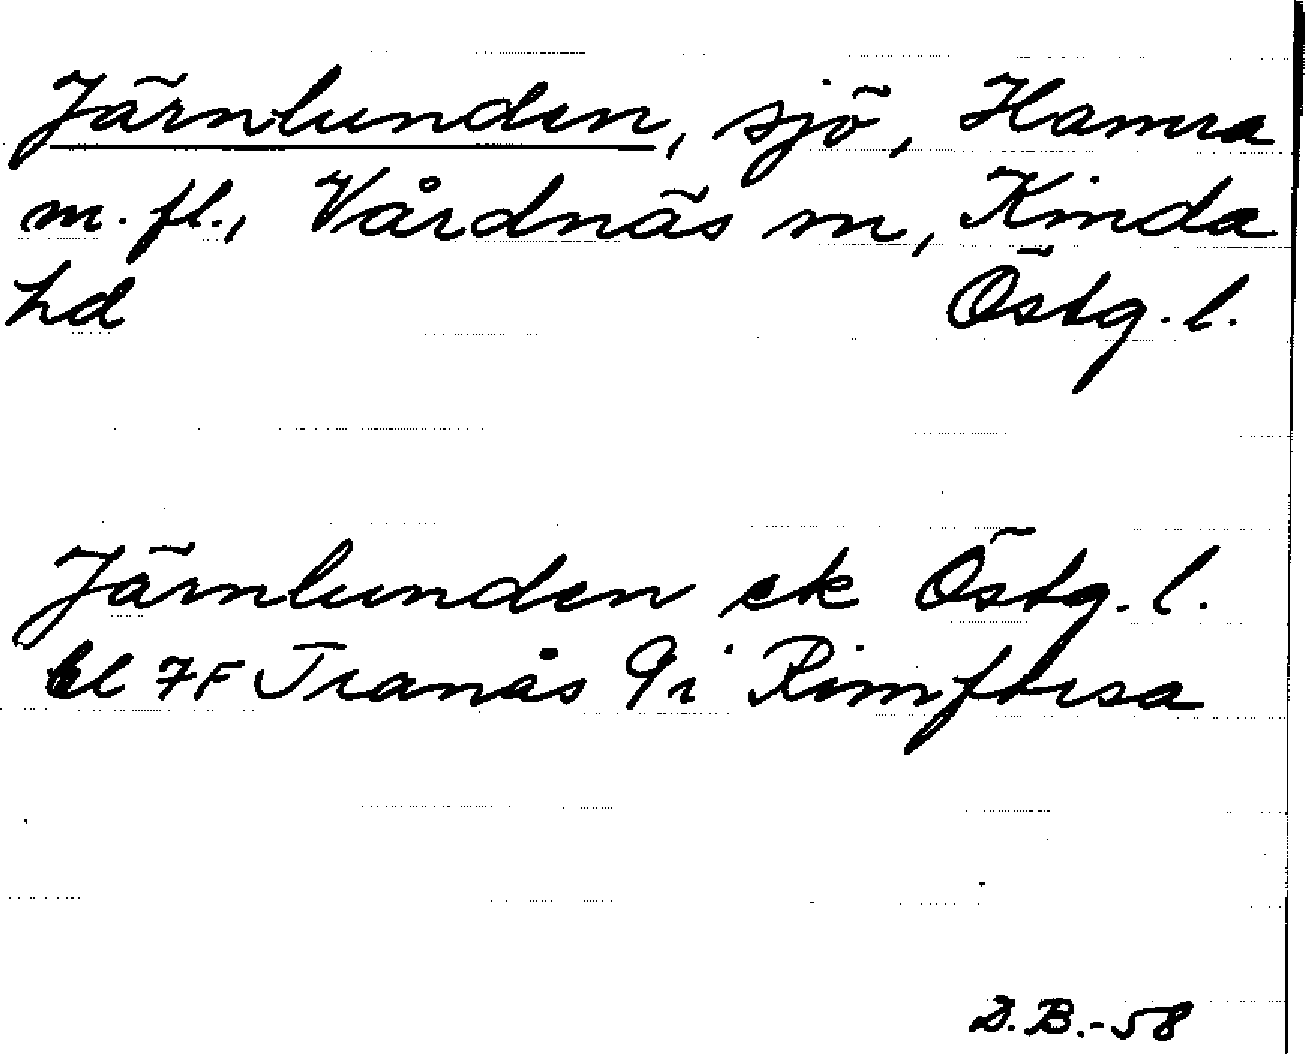 Järnlunden, sjö, Hamra
m. fl., Vårdnäs m, Kinda
hd Östg. l.
Järnlunden ek Östg. l.
bl 7F Tranås 9i Rimforsa
D.B.-58